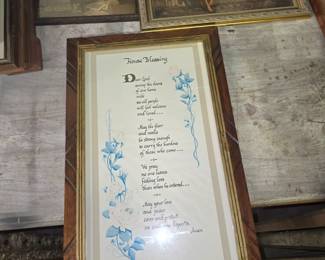 House Blessing
Dear Lord
swing the doors
of our home
wide
so all people
will feel welcome
and loved....
May the floor
and walls
be strong enough
to carry the burdens
of those who come....
We pray
no one leaves
feeling less
than when he entered....
May your love
and peace
cover and protect
Amen